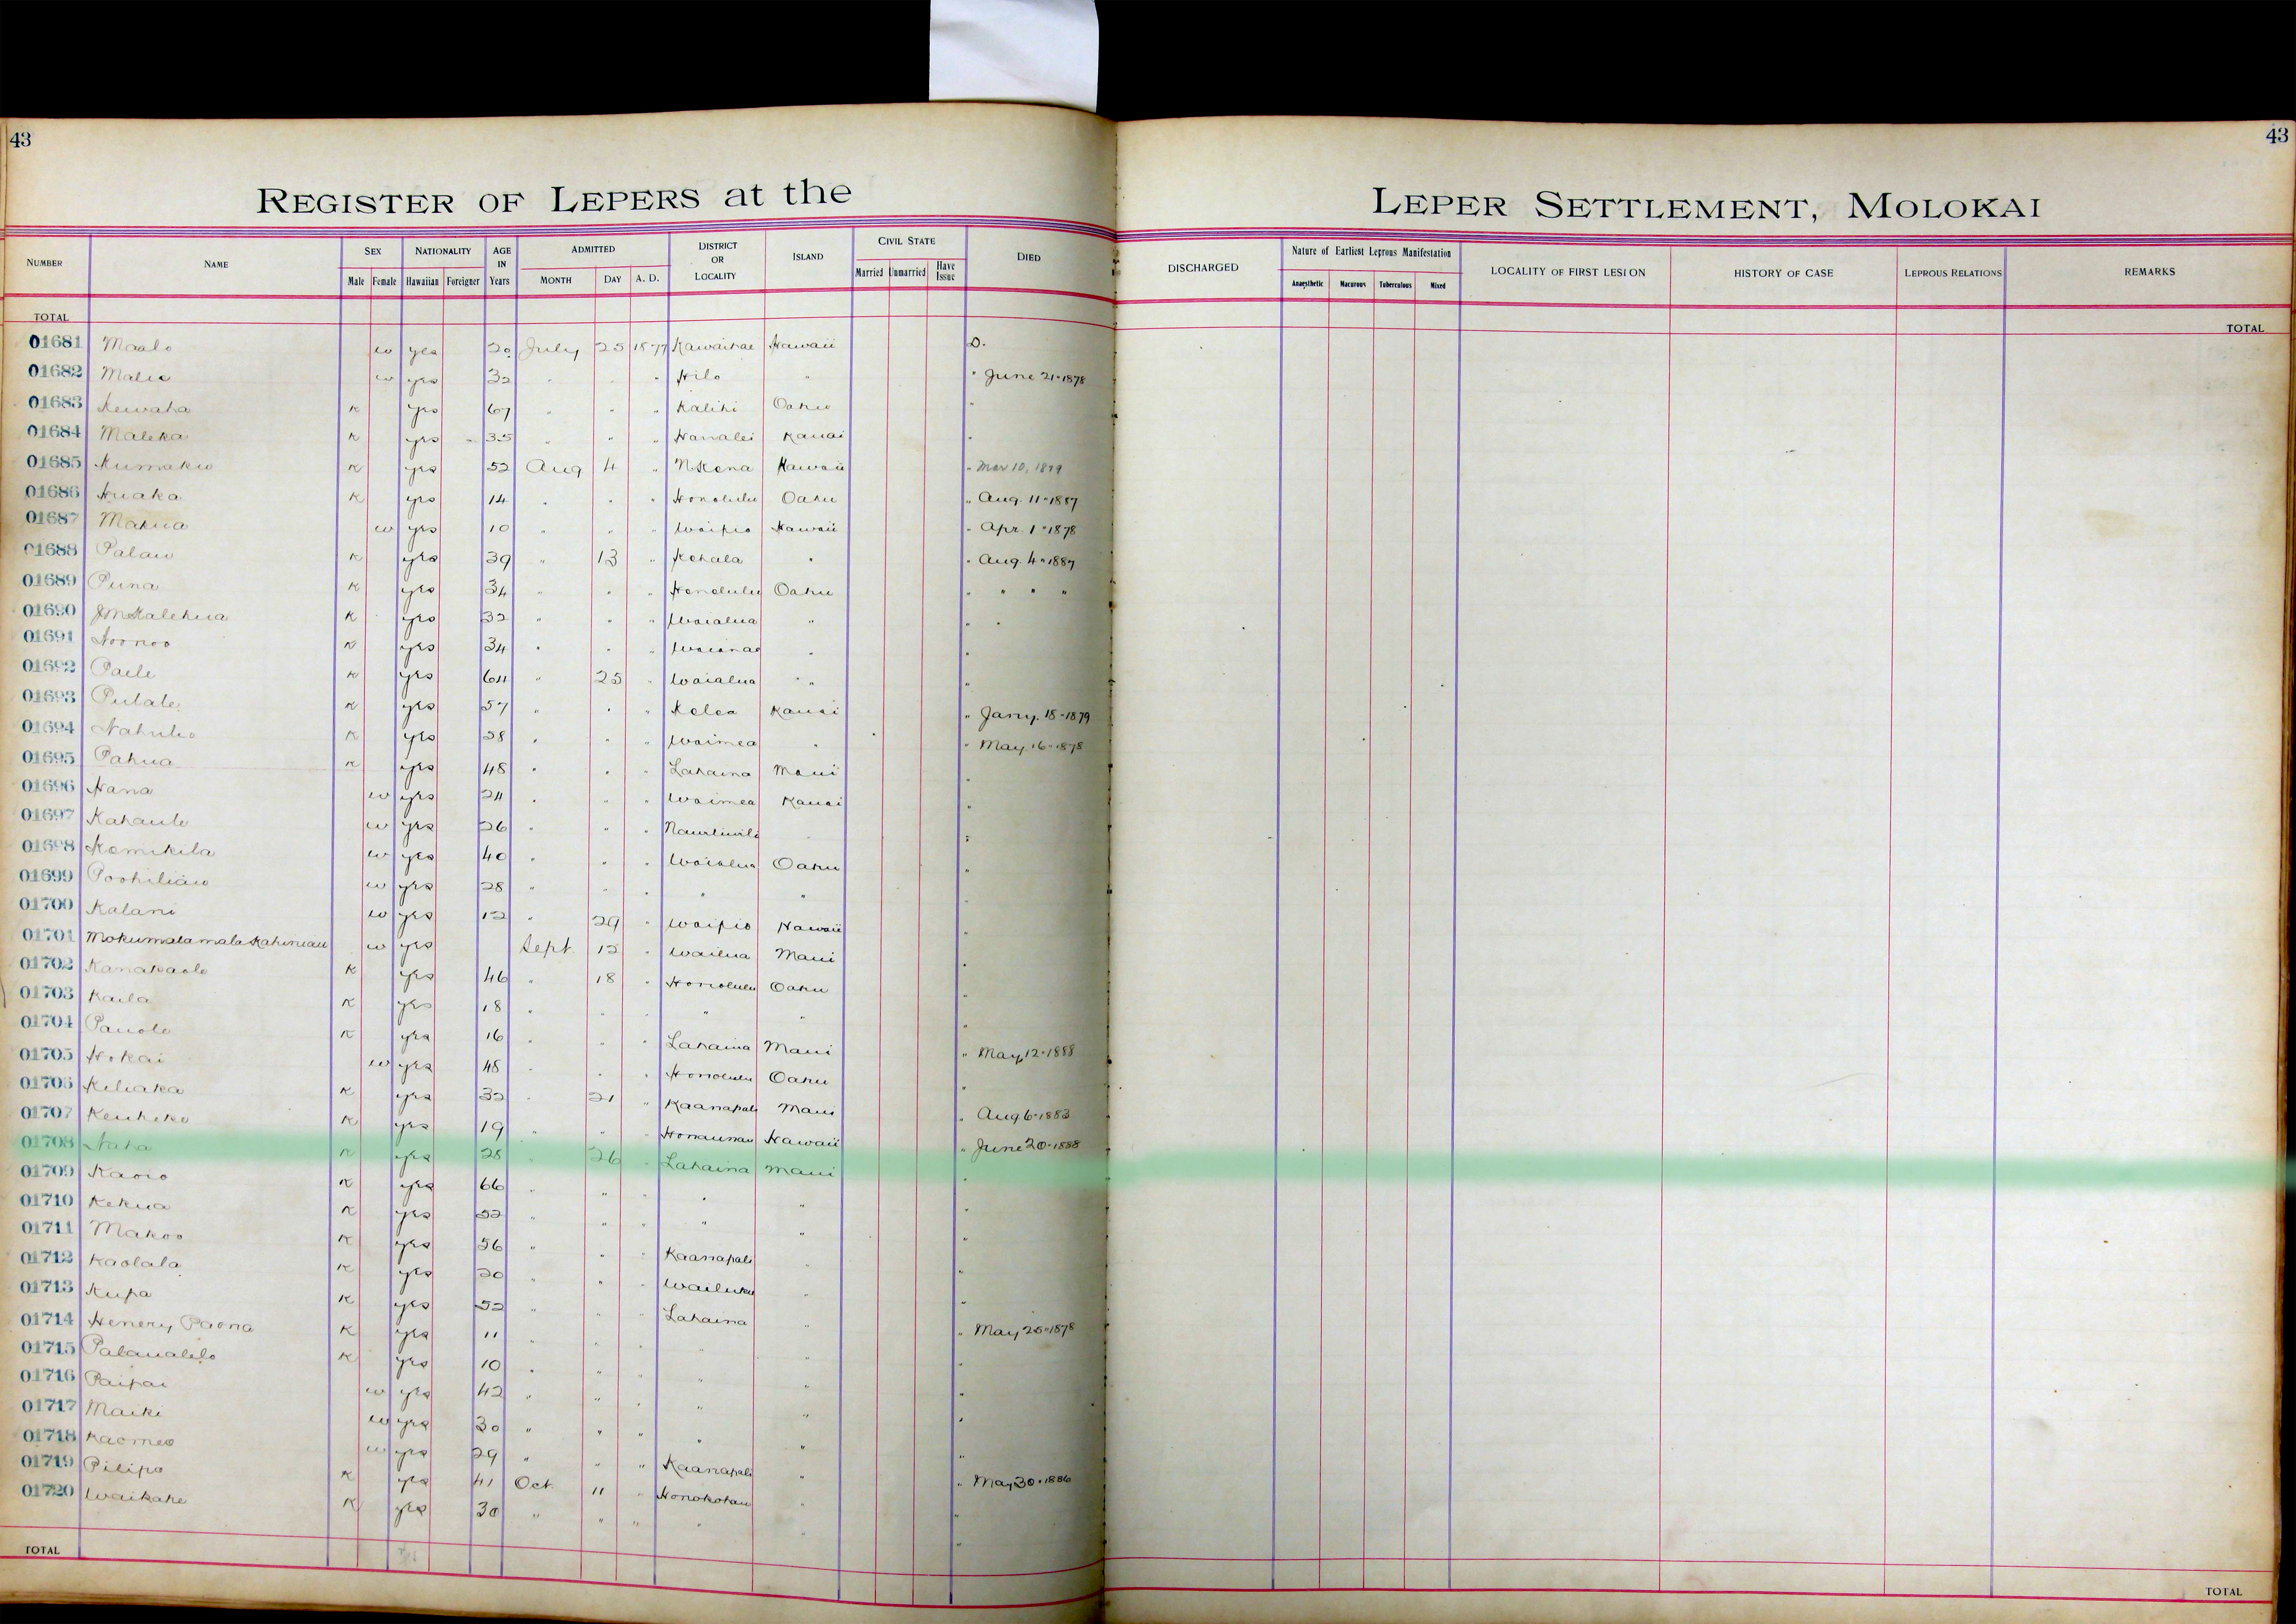 43
43
REGISTER OF LEPERS at the
LEPER SETTLEMENT, MOLOKAI
NUMBER NAME SEX Male Female NATIONALITY Hawaiian Foreigner AGE IN Years ADMITTED MONTH DAY A. D. DISTRICT OR LOCALITY ISLAND CIVIL STATE Married Unmarried Have Issue DIED
DISCHARGED Nature of Earliest Leprous Manifestation Anaesthetic Macurous Tuberculous Mixed LOCALITY OF FIRST LESION HISTORY OF CASE LEPROUS RELATIONS REMARKS
TOTAL
TOTAL
01681 Maalo w yes 20 July 25 1877 Kawaihae Hawaii D.
01682 w yes 32 " " " Hilo " " June 21-1878
01683 Kewaha K yes 67 " " " Kalihi Oahu "
01684 Maleka K yes 35 " " " Hanalei Kauai "
01685 Kumaku K yes 52 Aug 4 " N Kona Hawaii " Mar 10, 1879
01686 Huaka K yes 14 " " " Honolulu Oahu " Aug. 11-1887
01687 Makua w yes 10 " " " Waipio Hawaii " Apr. 1-1878
01688 Palau K yes 39 " 13 " Kohala " " Aug. 4-1887
01689 Puna K yes 34 " " " Honolulu Oahu " " " "
01690 J M Kalehua K yes 32 " " " Waialua " " "
01691 Noonoo K yes 34 " " " Waianae " "
01692 Paele K yes 64 " 25 " Waialua " " "
01693 Pulale K yes 57 " " " Koloa Kauai " Jany. 18-1879
01694 K yes 28 " " " Waimea " " May 16-1878
01695 Pahua K yes 48 " " " Lahaina Maui "
01696 Hana w yes 24 " " " Waimea Kauai "
01697 Kahaule w yes 26 " " " "
01698 Kamikila w yes 40 " " " Waialua Oahu "
01699 Poohiliau w yes 28 " " " " " "
01700 Kalani w yes 12 " 29 " Waipio Hawaii "
01701 Mokumalamala Kahiniau w yes Sept. 12 " Wailua Maui "
01702 Kanakaole K yes 46 " 18 " Honolulu Oahu "
01703 Kaila K yes 18 " " " " " "
01704 Pauole K yes 16 " " " Lahaina Maui " May 12-1888
01705 Hokai w yes 48 " " " Honolulu Oahu "
01706 Keliaka K yes 32 " 21 " Kaanapali Maui " Aug 6-1883
01707 Keuheke K yes 19 " " " Honaunau Hawaii " June 20-1888
01708 Naha K yes 28 " 26 " Lahaina Maui "
01709 Kaoio K yes 66 " " " " " "
01710 Kekua K yes 52 " " " " " "
01711 Makoo K yes 56 " " " Kaanapali " "
01712 Kaolala K yes 20 " " " Wailuku " "
01713 Kupa K yes 52 " " " Lahaina " "
01714 Henery Paona K yes 11 " " " " " " May 25-1878
01715 Palaualelo K yes 10 " " " " " "
01716 Paipai w yes 42 " " " " " "
01717 Maiki w yes 30 " " " " " "
01718 Kaomea w yes 29 " " " Kaanapali " "
01719 Pilipo K yes 41 Oct. 11 " Honokohau " " May 30-1886
01720 Waikahe K yes 30 " " " " " "
TOTAL
TOTAL